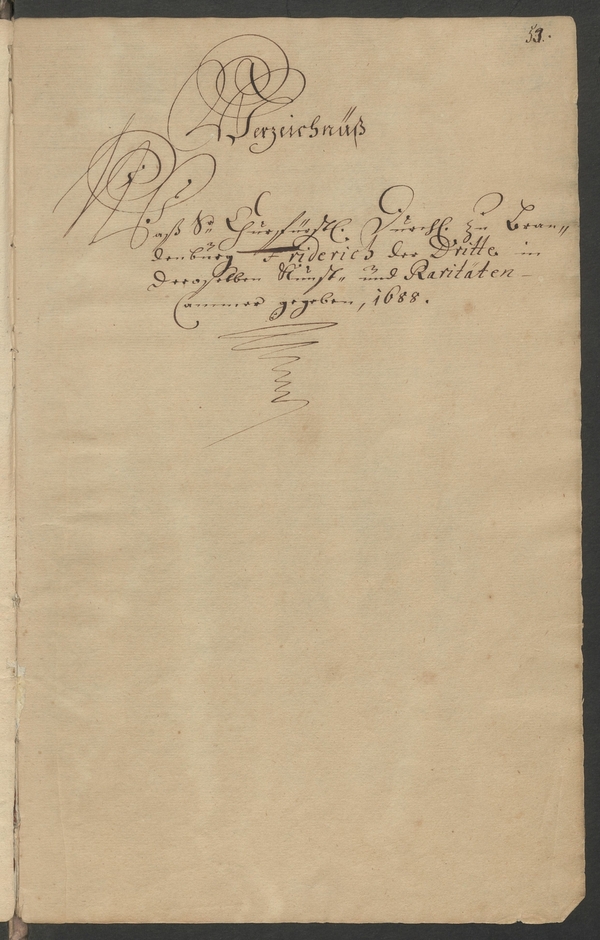 53.
Verzeichnüß
Waß Sr. Churfürstl. Durchl. zu Bran-
denburg Friderich der Dritte in
deroselben Kunst- und Raritäten-
Cammer gegeben, 1688.